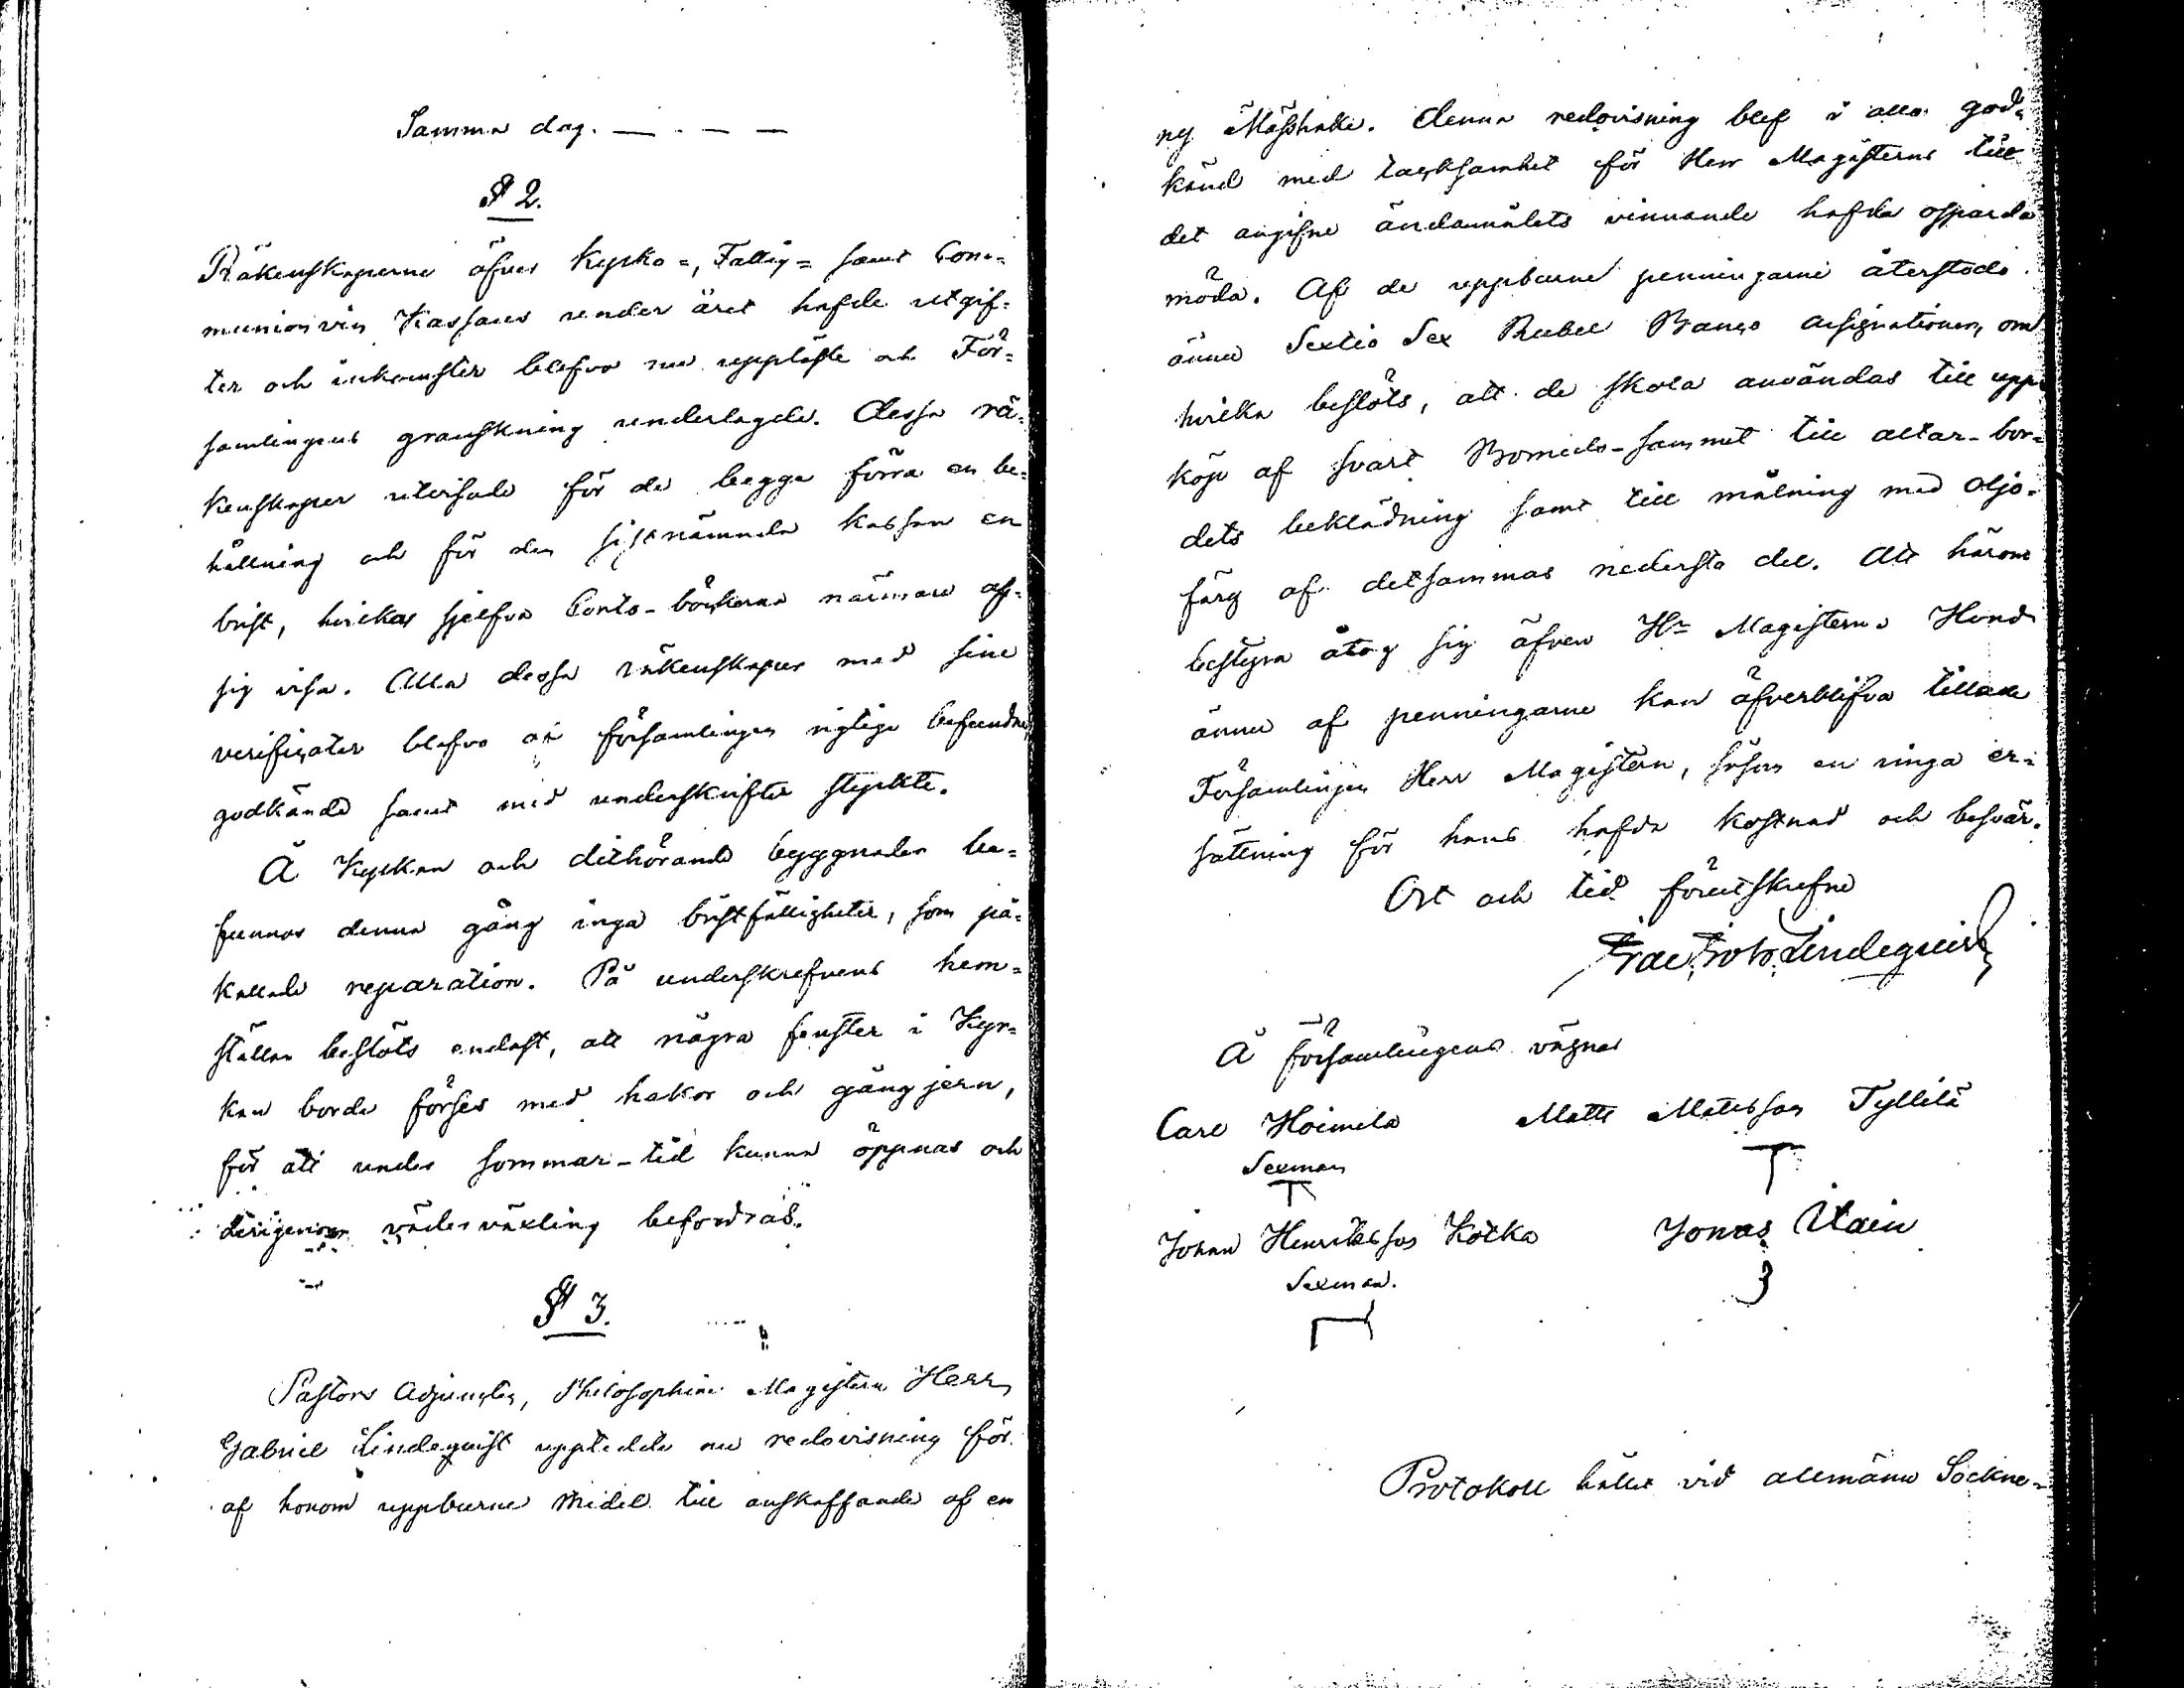 Samma dag. — . — —
§ 2.
Räkenskaperne öfver Kyrko=, Fattig= samt Com=
munionvin Kassans under året hafde utgif=
ter och inkomster blefvo nu uppläste och För=
samlingens granskning underlagde. Dessa rä=
kenskaper utvisade för de begge förra en be=
hållning och för den sistnämnda kassan en
brist, hvilket sjelfva Conto-böckerna närmare ut=
sig visa. Alla dessa räkenskaper med sine
verificater blefvo af församlingen rigtige befundne
godkände samt med underskrifter styrkte.
Å Kyrkan och dithörande byggnader be=
funnos denna gång inga bristfälligheter, som på=
kallade reparation. På underskrefvens hem=
ställan beslöts endast, att några fenster i Kyr=
kan borde förses med hakor och gångjern,
för att under sommar-tid kunna öppnas och
derigenom väderväxling befordras.
§ 3.
Pastors Adjuncten, Philosophiæ Magistern Herr
Gabriel Lindequist uppledde nu redovisning för
af honom uppburne medel till anskaffande af en
ny Mässhake. Denna redovisning blef i allo god=
känd med tacksamhet för Herr Magisterns till
det angifne ändamålets vinnande hafda ospard
möda. Af de uppburne penningarne återstodo
ännu Sextio Sex Rubel Banco Assignationer, om
hvilka beslöts, att de skola användas till upp=
köp af svart Bomulls-sammet till altar-bor=
dets beklädning samt till målning med oljo=
färg af detsammas nedersta del. Att härom
bestyra åtog sig äfven Hr Magistern. Hvad
ännu af penningarne kan öfverblifva tillade
Församlingen Herr Magistern, såsom en ringa er=
sättning för hans hafda kostnad och besvär.
Ort och tid förutskrefne
Lindequist
Å församlingens vägnar
Carl Hoimela Matts Matsson Tyllilä
Sexman
Johan Henriksson Kotka Jonas Stain
Sexman.
Protokoll hållet vid allmänna Sockne=